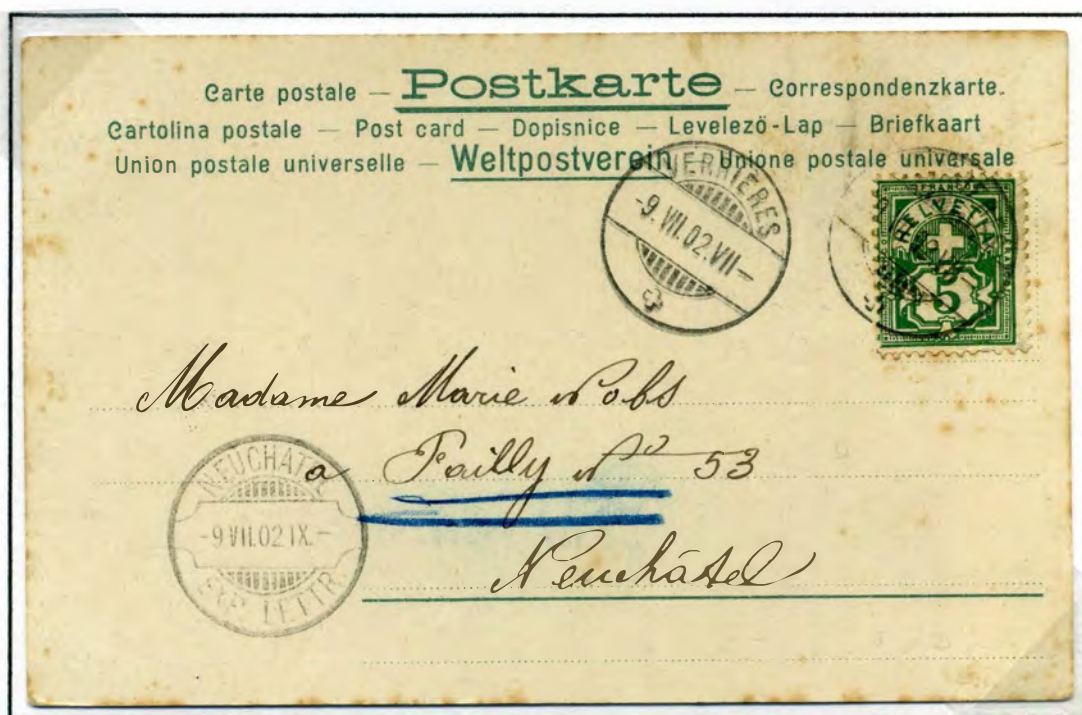 Carte postale — Postkarte — Correspondenzkarte.
Cartolina postale — Post card — Dopisnice — Levelező-Lap — Briefkaart
Union postale universelle — Weltpostverein — Unione postale universale
VERRIÈRES
-9.VII.02.VII—
FRANCO
HELVETIA
5
Madame Marie Nobs
a Failly No 53
Neuchâtel
NEUCHATEL
-9 VII.02 IX.—
EXP. LETTR.